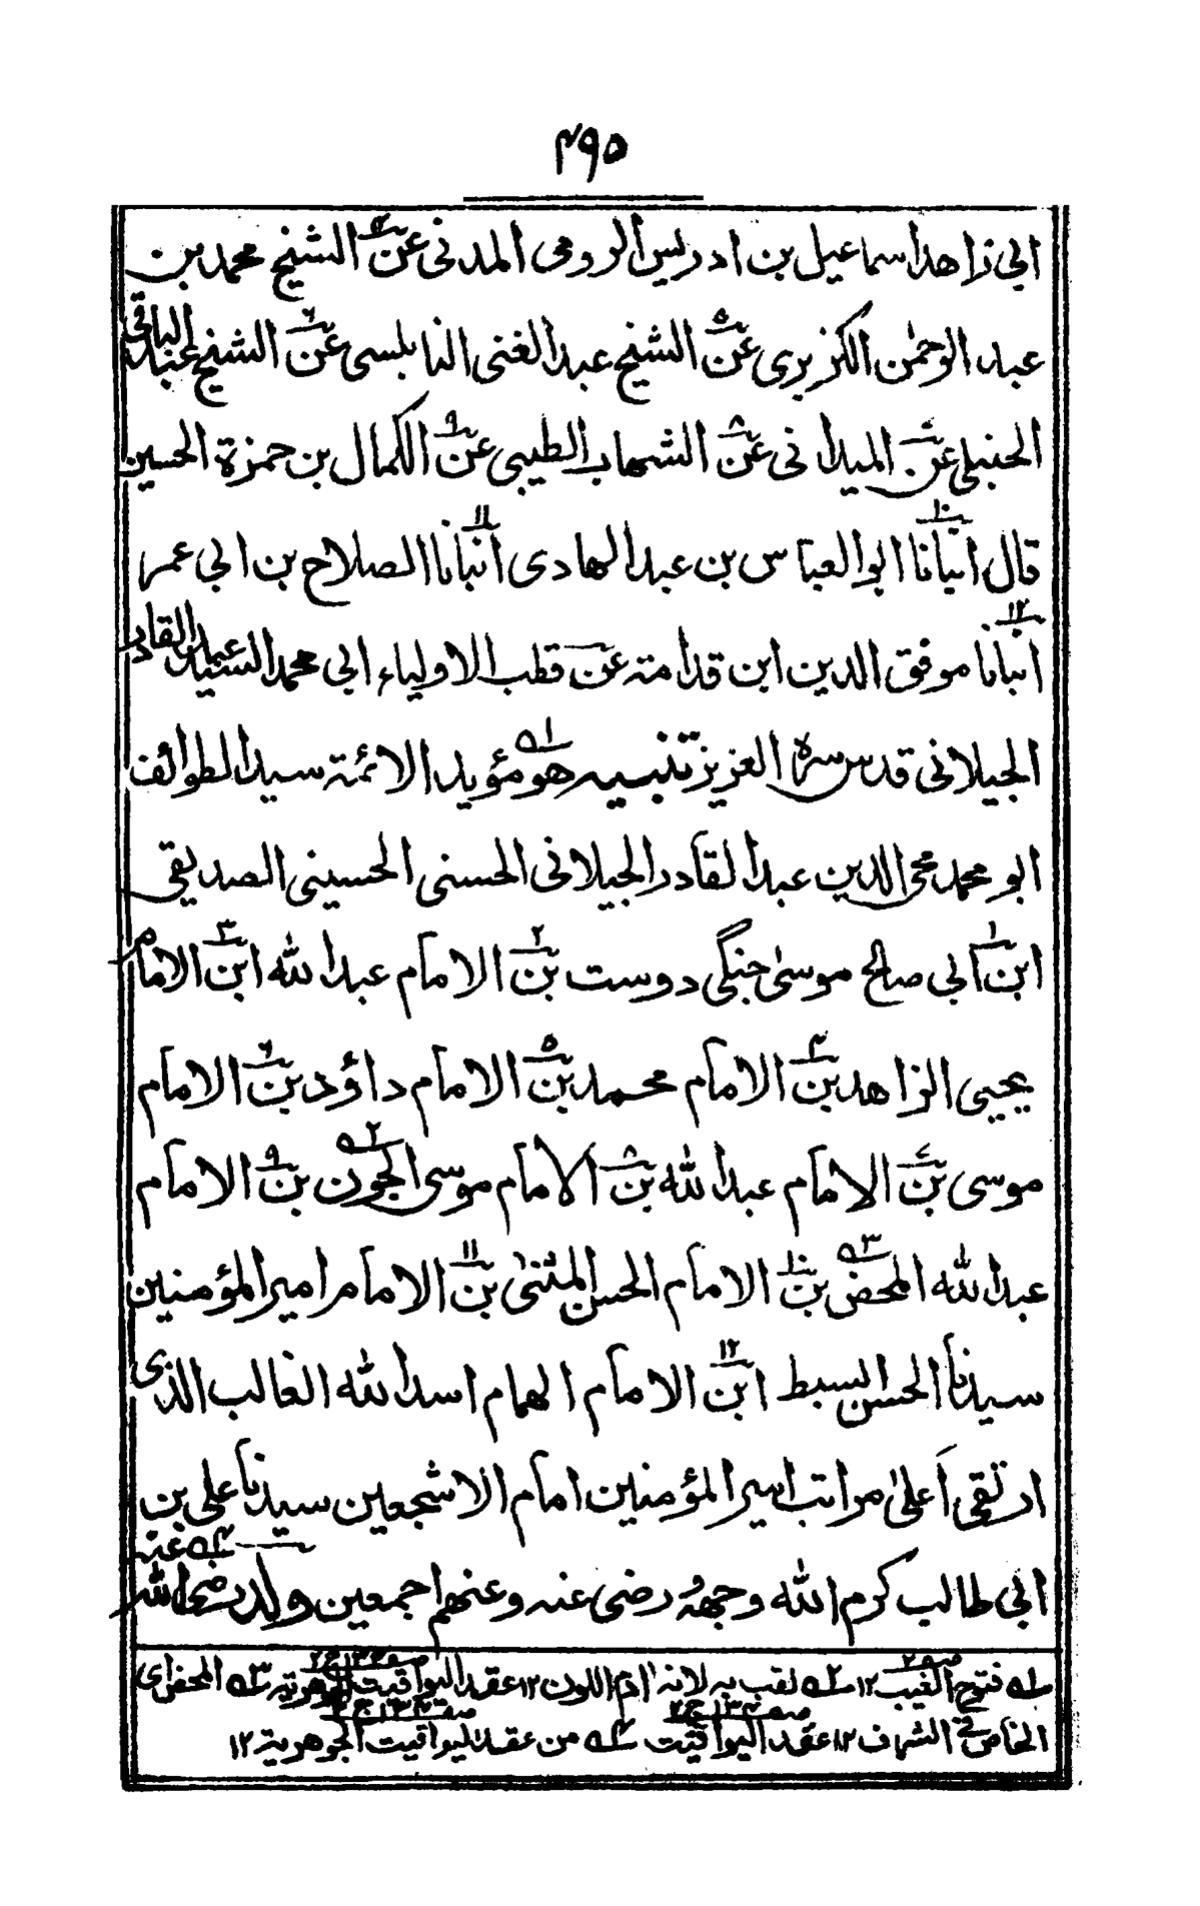 ۴۹۵
ابی زاهد اسماعیل بن ادریس الرومی المدنی عن۴ الشیخ محمد بن
عبد الرحمٰن الکزبری عن۵ الشیخ عبد الغنی النابلسی عن۶ الشیخ عبد الباقی
الحنبلی عن۷ المیدانی عن۸ الشهاب الطیبی عن۹ الکمال بن حمزة الحسین
قال انبانا۱۰ ابو العباس بن عبد الهادی انبانا۱۱ الصلاح بن ابی عمر
انبانا۱۲ موفق الدین ابن قدامة عن قطب الاولیاء ابی محمد السید عبد القادر
الجیلانی قدس سره العزیز تنبیه هو۱ مؤید الائمة سید الطوائف
ابو محمد محی الدین عبد القادر الجیلانی الحسنی الحسینی الصدیقی
ابن۱ ابی صالح موسیٰ جنگی دوست بن۲ الامام عبد الله ابن۳ الامام
یحیی الزاهد بن۴ الامام محمد بن۵ الامام داؤد بن۶ الامام
موسی بن۷ الامام عبد الله بن۸ الامام موسی الجون۲ بن۹ الامام
عبد الله المحض۳ بن۱۰ الامام الحسن المثنیٰ بن۱۱ الامام امیر المؤمنین
سیدنا الحسن السبط ابن۱۲ الامام الهمام اسد الله الغالب الذی
ارتقی اعلیٰ مراتب امیر المؤمنین امام الاشجعین سیدنا علی بن
ابی طالب کرم الله وجهه رضی عنه وعنهم اجمعین ولد رضی الله عنه۴
۱ فتوح الغیب صـ۲ ۱۲ ۲ لقب به لانه ادم اللون ۱۲ عقد الیواقیت الجوهریة ۳ المحض ای
الخاص فی الشرف ۱۲ عقد الیواقیت ۴ من عقد الیواقیت الجوهریة ۱۲